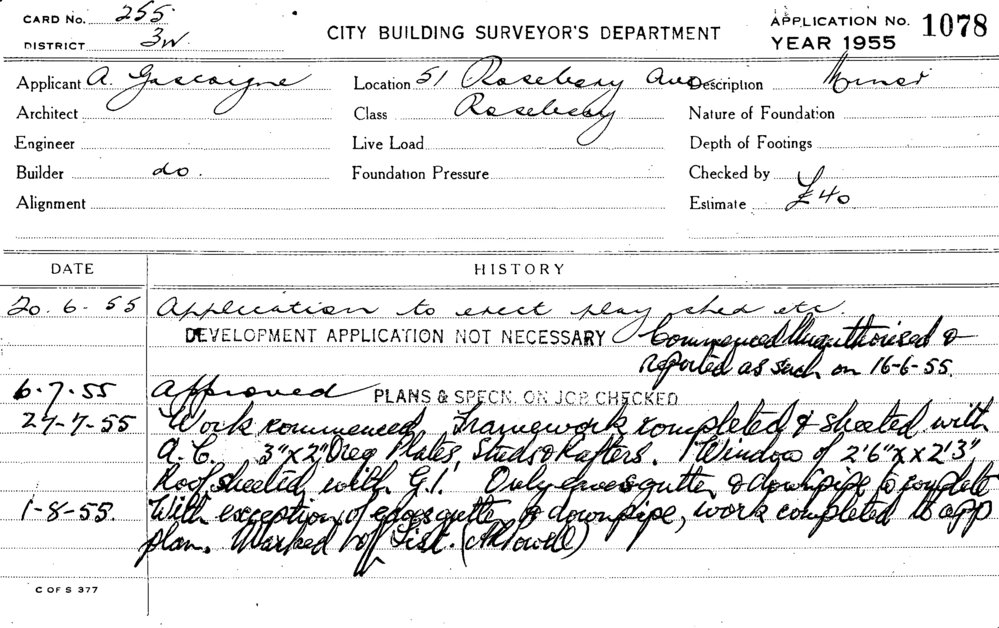 CARD No. 255
DISTRICT 3W.
CITY BUILDING SURVEYOR'S DEPARTMENT
APPLICATION No. 1078
YEAR 1955
Applicant A. Gascoigne Location 51 Rosebery Ave Description Minor
Architect Class Rosebery Nature of Foundation
Engineer Live Load Depth of Footings
Builder do. Foundation Pressure Checked by
Alignment Estimate £40
DATE HISTORY
20.6.55 Application to erect play shed etc.
DEVELOPMENT APPLICATION NOT NECESSARY Commenced Unauthorised &
reported as such on 16-6-55.
6.7.55 Approved PLANS & SPECN. ON JOB CHECKED
27-7-55 Work commenced. Framework completed & sheeted with
A.C. 3"x2" Oreg Plates, Studs & Rafters. 1 Window of 2'6" x 2'3".
Roof sheeted with G.I. Only eaves gutter & downpipe to complete
1-8-55. With exception of eaves gutter & downpipe, work completed to app
plan. Marked off List.
C OF S 377